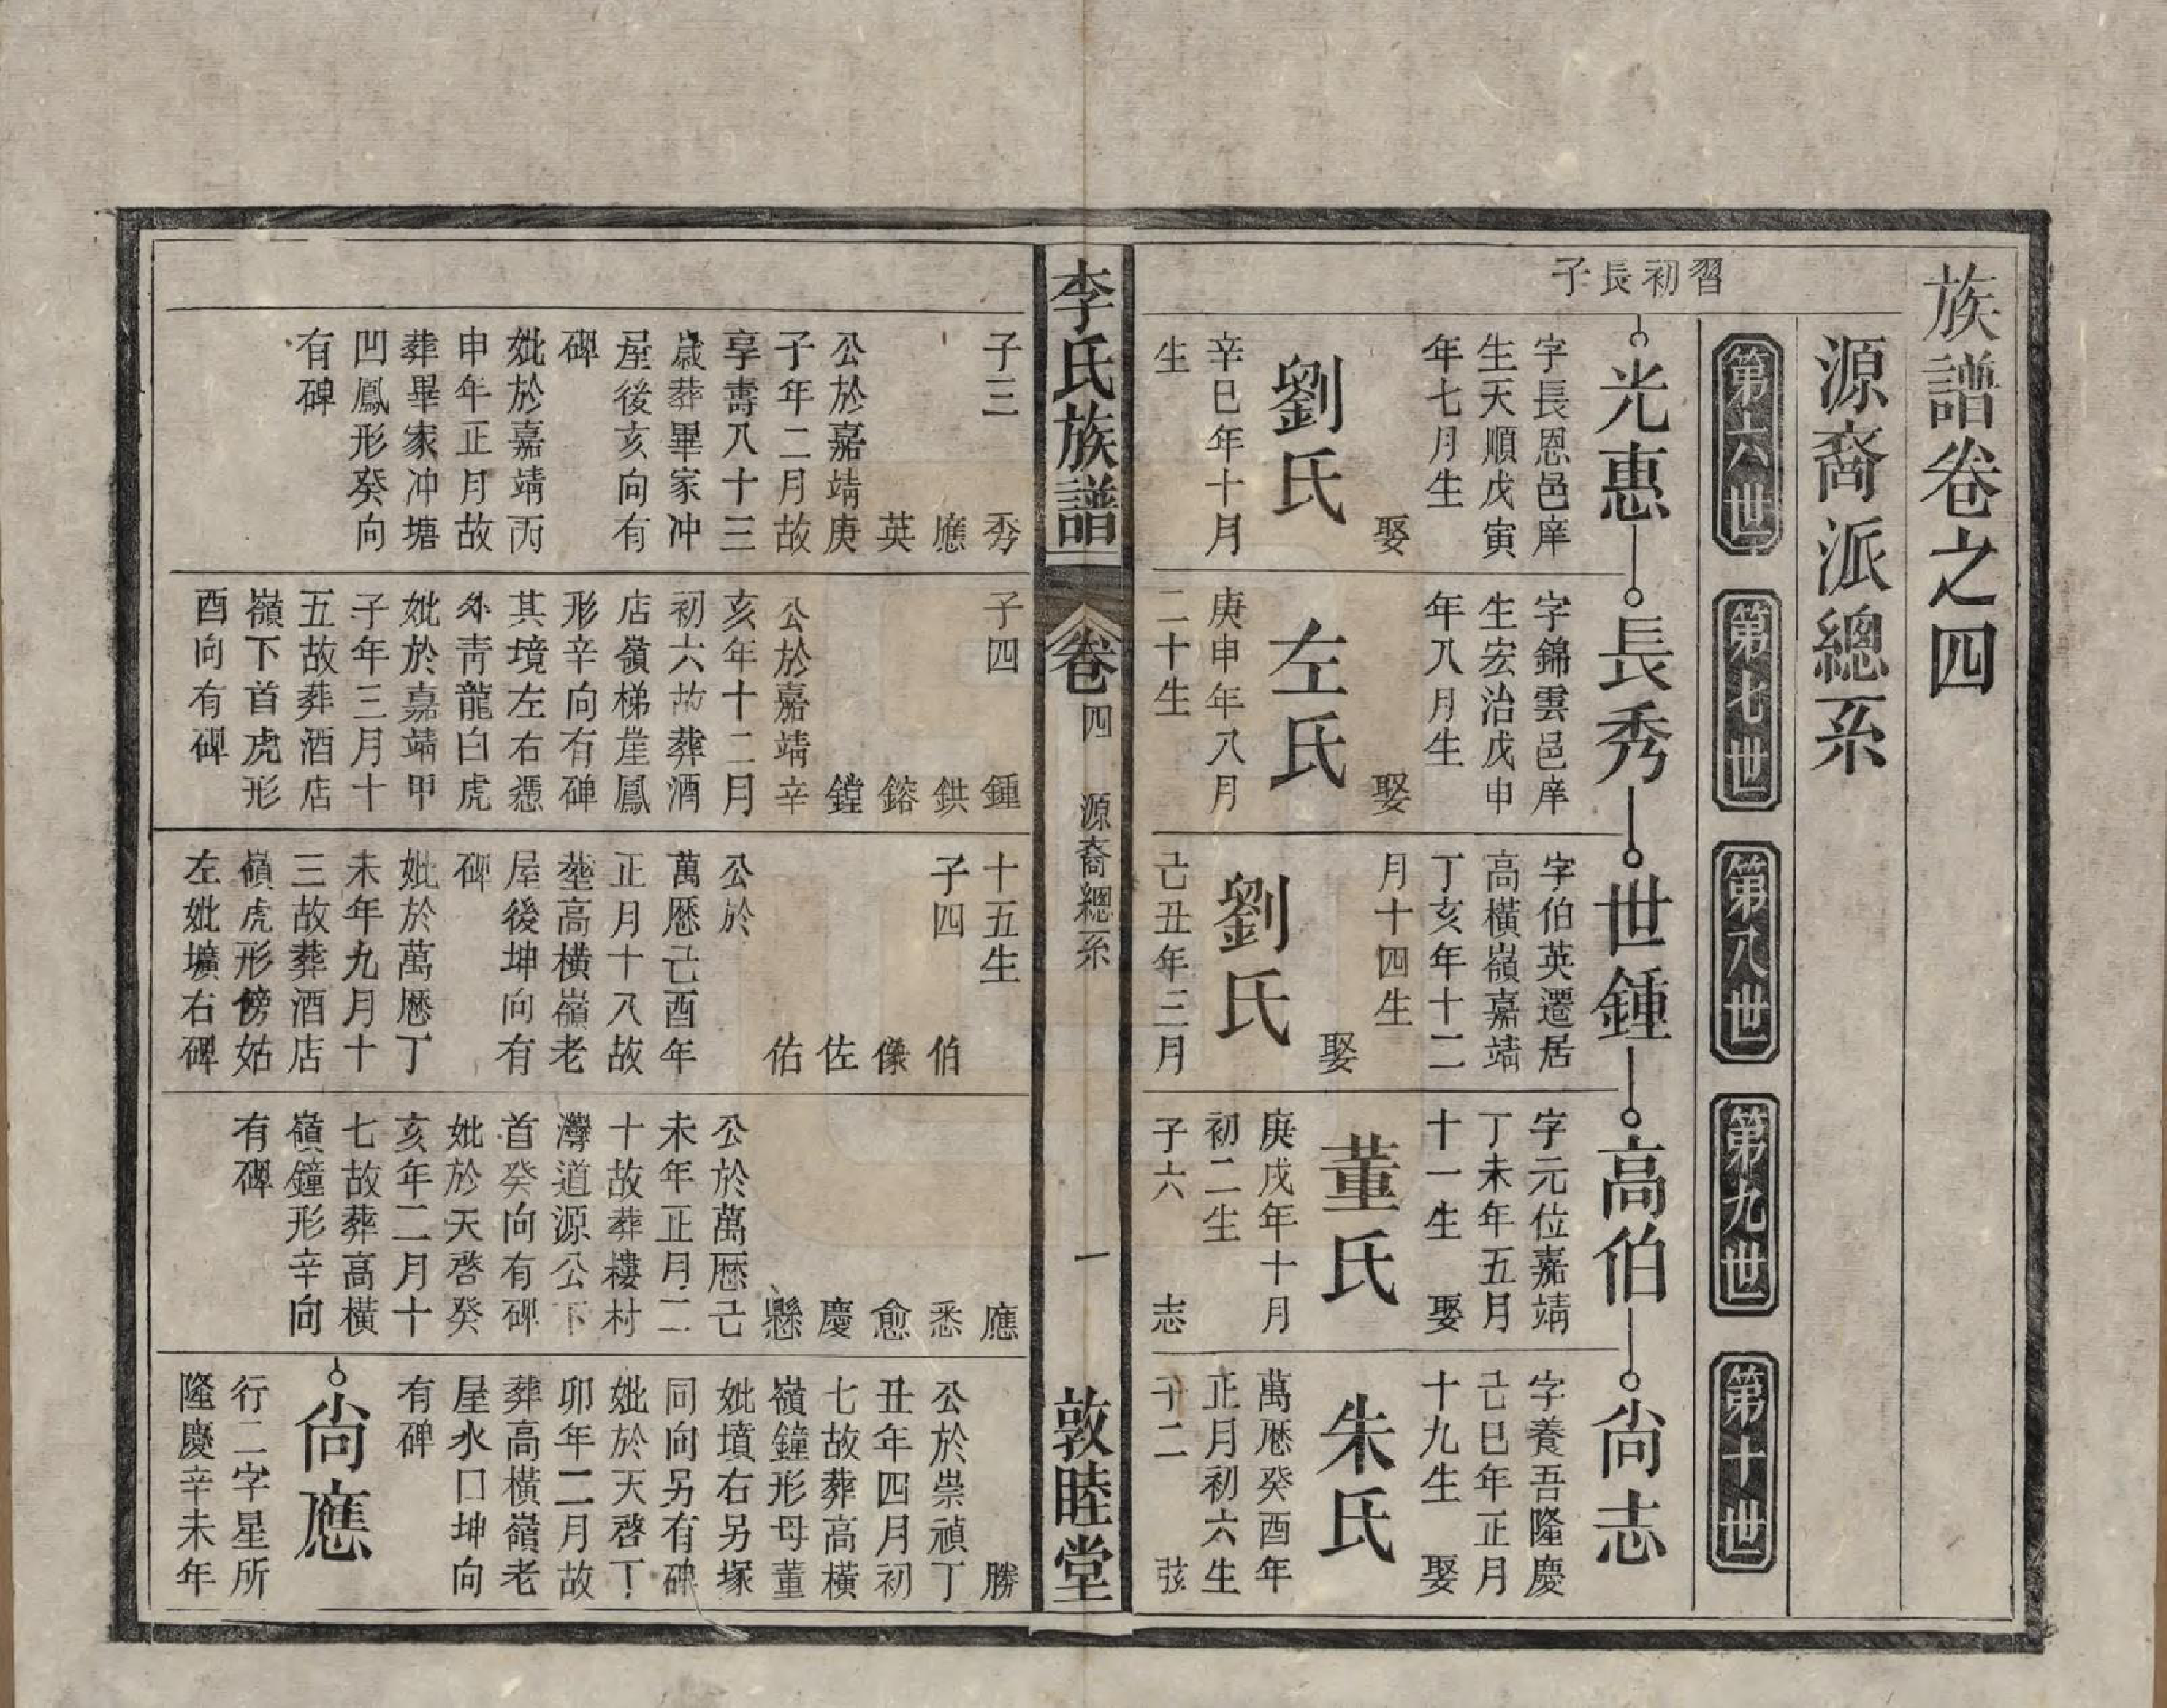 族譜卷之四
源裔派總系
第六世
第七世
第八世
第九世
第十世
習初長子
光惠
字長恩邑庠
生天順戊寅
年七月生
娶
劉氏
辛巳年十月
生
子三
秀
應
英
公於嘉靖庚
子年二月故
享壽八十三
歲葬畢家冲
屋後亥向有
碑
妣於嘉靖丙
申年正月故
葬畢家冲塘
凹鳳形癸向
有碑
長秀
字錦雲邑庠
生宏治戊申
年八月生
娶
左氏
庚申年八月
二十生
子四
鍾
鉷
鎔
鏜
公於嘉靖辛
亥年十二月
初六故葬酒
店嶺梯崖鳳
形辛向有碑
其境左右憑
外靑龍白虎
妣於嘉靖甲
子年三月十
五故葬酒店
嶺下首虎形
酉向有碑
世鍾
字伯英遷居
高橫嶺嘉靖
丁亥年十二
月十四生
娶
劉氏
己丑年三月
十五生
子四
伯
像
佐
佑
公於
萬厯己酉年
正月十八故
塟高橫嶺老
屋後坤向有
碑
妣於萬厯丁
未年九月十
三故葬酒店
嶺虎形傍姑
左妣壙右碑
高伯
字元位嘉靖
丁未年五月
十一生
娶
董氏
庚戌年十月
初二生
子六
志
應
悉
愈
慶
懸
公於萬厯己
未年正月二
十故葬樓村
灣道源公下
首癸向有碑
妣於天啓癸
亥年二月十
七故葬高橫
嶺鐘形辛向
有碑
尙志
字養吾隆慶
己巳年正月
十九生
娶
朱氏
萬厯癸酉年
正月初六生
子二
弦
勝
公於崇禎丁
丑年四月初
七故葬高橫
嶺鐘形母董
妣墳右另塚
同向另有碑
妣於天啓丁
卯年二月故
葬高橫嶺老
屋水口坤向
有碑
尙應
行二字星所
隆慶辛未年
李氏族譜
卷四
源裔總系
一
敦睦堂